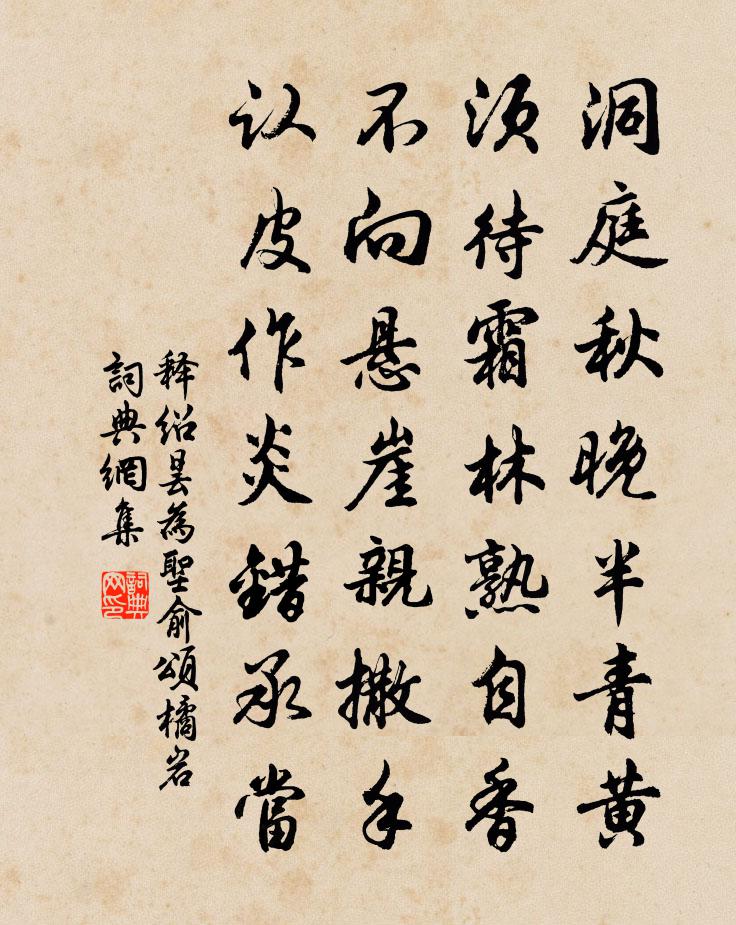 洞庭秋晚半青黄
须待霜林熟自香
不向悬崖親撒手
认皮作炎錯承當
释绍昙為聖俞頌橘岩
詞典網集
詞典网印